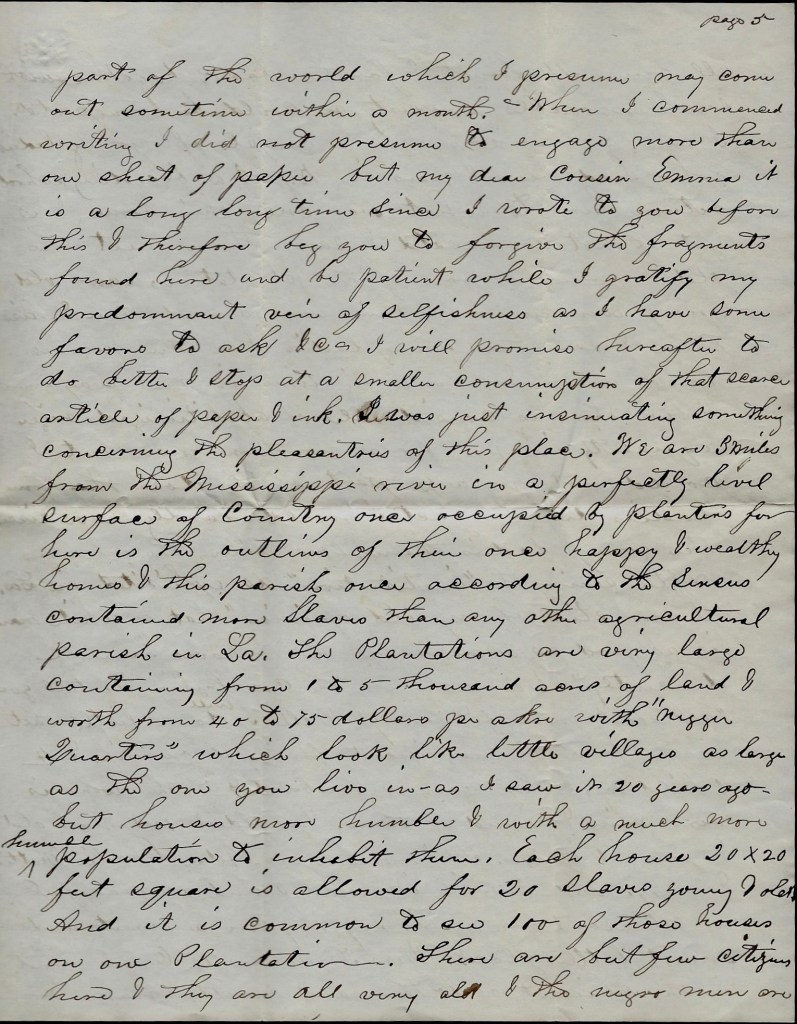 page 5
part of the world which I presume may come
out sometime within a month. - When I commenced
writing I did not presume to engage more than
one sheet of paper but my dear Cousin Emma it
is a long long time since I wrote to you before
this & therefore beg you to forgive the fragments
found here and be patient while I gratify my
predominant vein of selfishness as I have some
favors to ask &c - I will promise hereafter to
do better & stop at a smaller consumption of that scarce
article of paper & ink. I was just insinuating something
concerning the pleasantries of this place. We are 3 miles
from the Mississippi river in a perfectly level
surface of Country once occupied by planters for
here is the outlines of their once happy & wealthy
homes & this parish once according to the Sensus
contained more Slaves than any other agricultural
parish in La. The Plantations are very large
containing from 1 to 5 thousand acres of land &
worth from 40 to 75 dollars pr akre with "Nigger
Quarters" which look like little villages as large
as the one you live in - as I saw it 20 years ago -
but houses more humble & with a much more
humble
population to inhabit them. Each house 20 X 20
feet square is allowed for 20 slaves young & old
And it is common to see 100 of those houses
on one Plantation. There are but few citizens
here & they are all very old & the negro men are